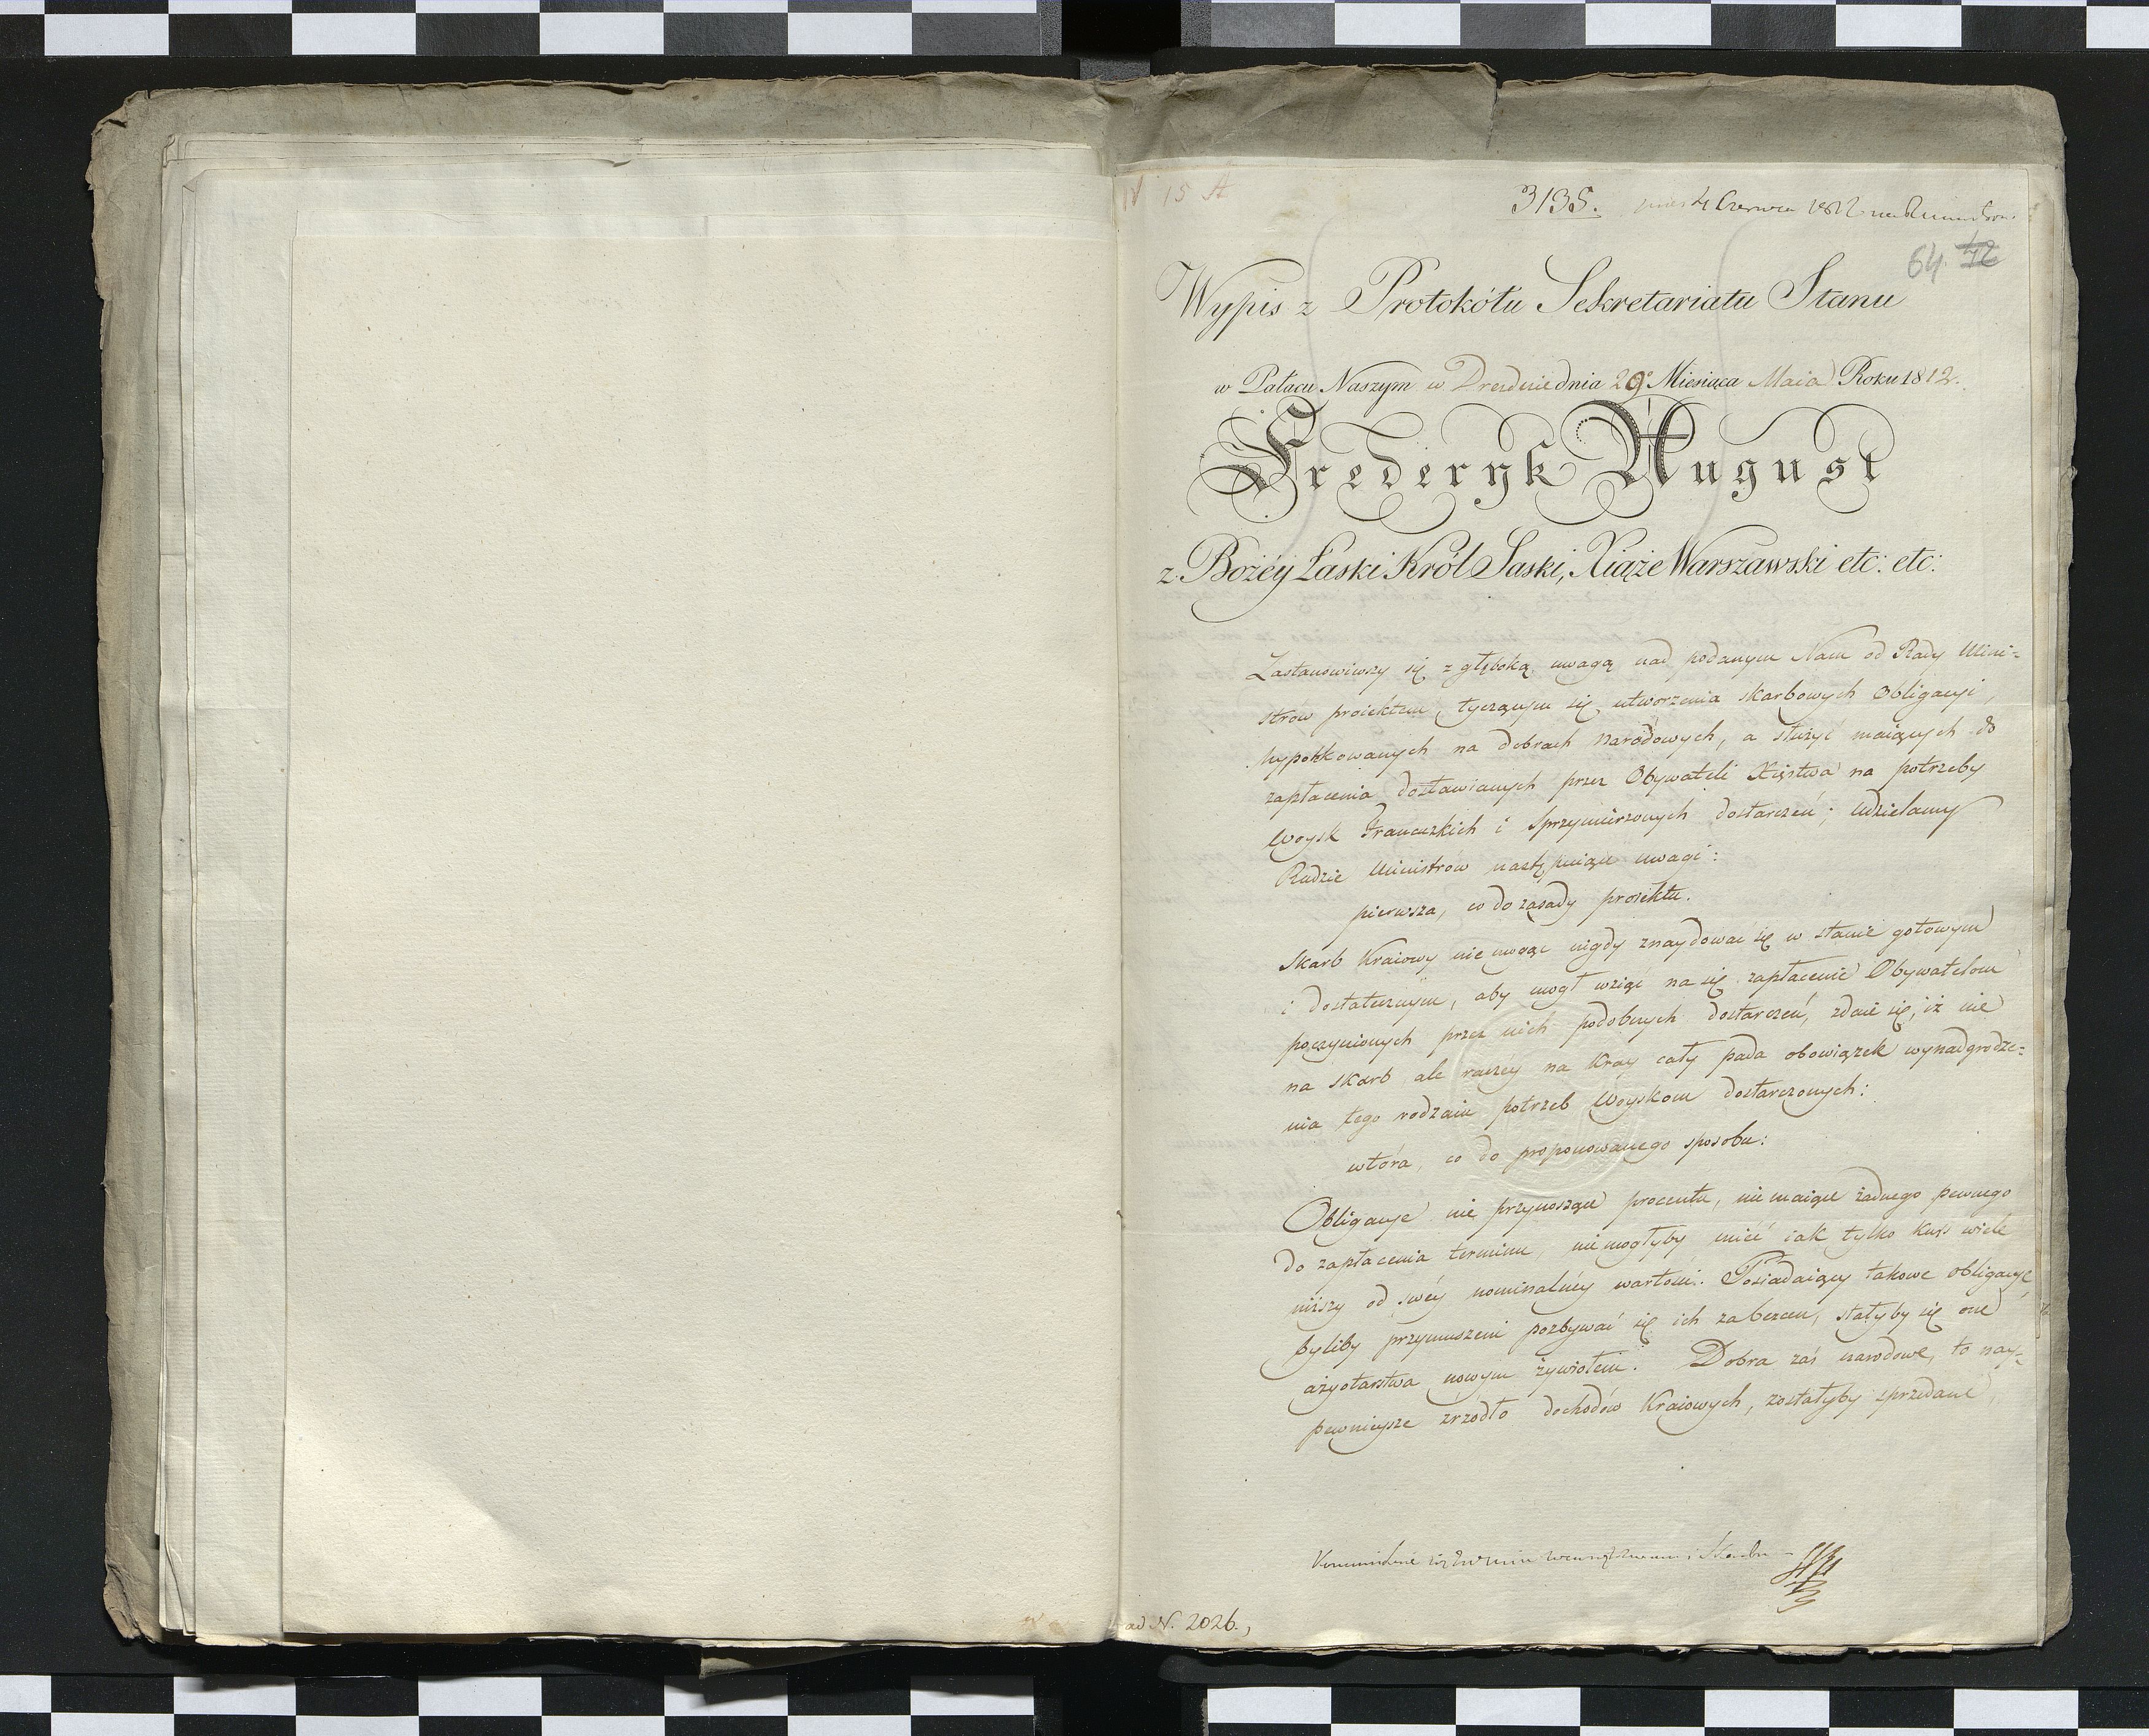 IV 15 A
3135. 4 Czerwca 1812 na
64. 42
Wypis z Protokółu Sekretariatu Stanu
w Pałacu Naszym w Dreźnie dnia 29° Miesiąca Maia Roku 1812.
Frederyk August
z Bożéy Łaski Król Saski, Xiąże Warszawski etc: etc:
Zastanowiwszy się z głęboką uwagą nad podanym Nam od Rady Mini=
strów proiektem, tyczącym się utworzenia skarbowych Obligacyi,
hypotekowanych na dobrach narodowych, a służyć maiących do
zapłacenia dostawianych przez Obywateli Xięstwa na potrzeby
Woysk Francuzkich i Sprzymierzonych dostarczeń; udzielamy
Radzie Ministrów następuiące uwagi:
pierwsza, co do zasady proiektu.
Skarb Kraiowy nie mogąc nigdy znaydować się w stanie gotowym
i dostatecznym, aby mogł wziąć na się zapłacenie Obywatelom
poczynionych przez nich podobnych dostarczeń, zdaie się, iż nie
na skarb ale raczéy na Kray cały pada obowiązek wynadgrodze=
nia tego rodzaiu potrzeb Woyskom dostarczonych:
wtóra, co do proponowanego sposobu:
Obligacye nie przynoszące procentu, nie maiące żadnego pewnego
do zapłacenia terminu, nie mogłyby mieć iak tylko kurs wiele
niższy od swéy nominalnéy wartości. Posiadaiący takowe obligacye
byliby przymuszeni pozbywać się ich za bezcen, stałyby się one
ażyotarstwa nowym żywiołem. Dobra zaś narodowe, to nay=
pewnieysze źrzodło dochodów Kraiowych, zostałyby sprzedane
i Skarbu
ad N. 2026.,